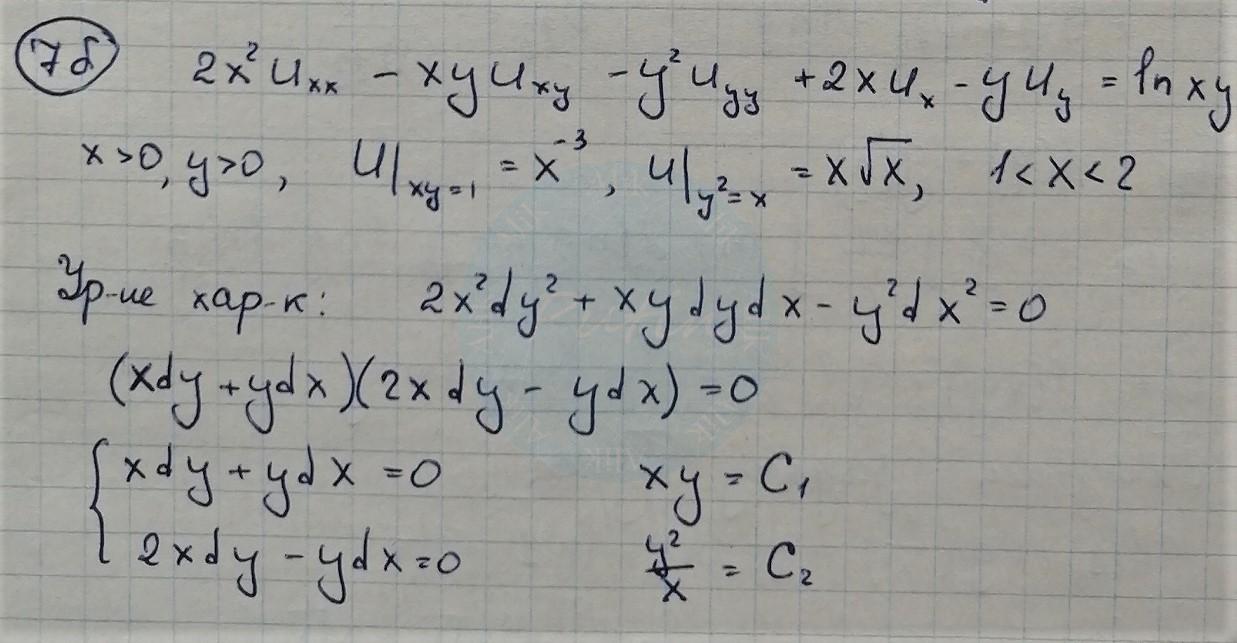 7б 2x² Uxx - xy Uxy - y² Uyy + 2x Ux - y Uy = ln xy
x>0, y>0, U|xy=1 = x⁻³, U|y²=x = x√x, 1<x<2
Ур-ие хар-к: 2x²dy² + xydydx - y²dx² = 0
(xdy + ydx)(2xdy - ydx) = 0
{ xdy + ydx = 0 xy = C₁
2xdy - ydx = 0 y²/x = C₂